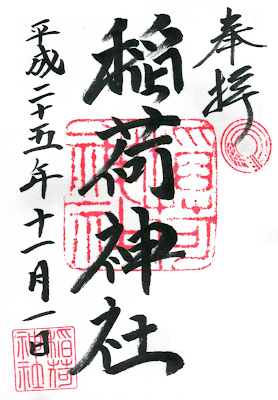 奉拝
稲荷神社
平成二十五年十一月一日
稲荷
神社